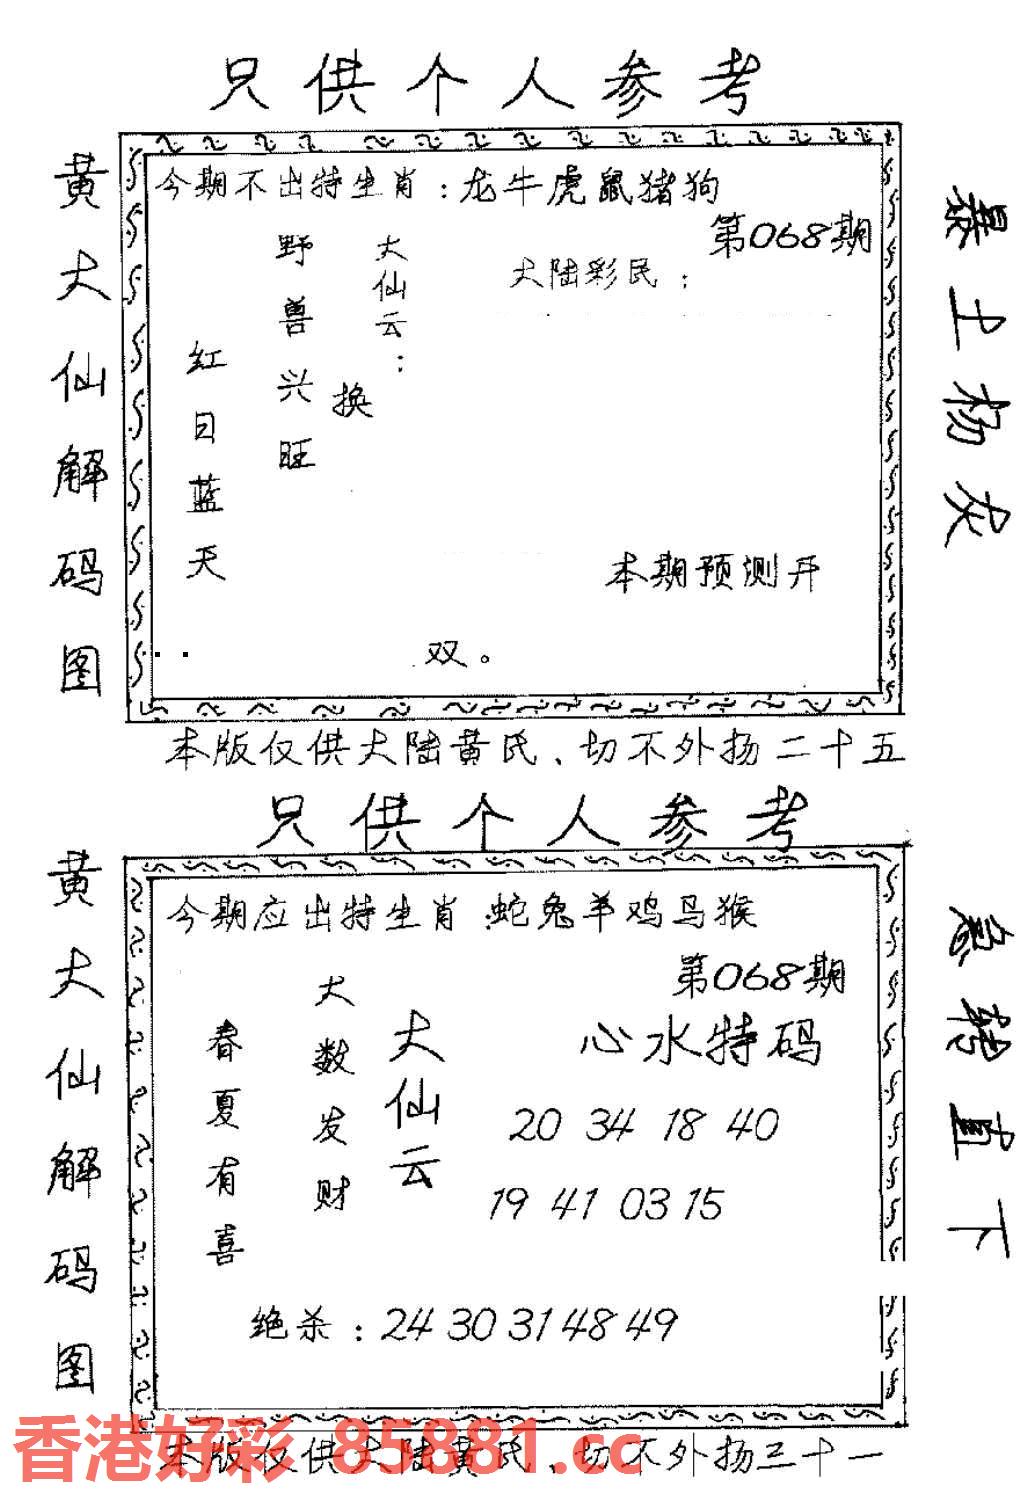 只供个人参考
黄大仙解码图
今期不出特生肖：龙牛虎鼠猪狗
第068期
大陆彩民：
大仙云：
野兽兴旺
换
红日蓝天
本期预测开
双。
暴土杨灰
本版仅供大陆黄氏、切不外扬二十五
只供个人参考
黄大仙解码图
今期应出特生肖:蛇兔羊鸡马猴
第068期
心水特码
大仙云
大数发财
春夏有喜
20 34 18 40
19 41 03 15
绝杀：24 30 31 48 49
急转直下
本版仅供大陆黄氏、切不外扬三十一
香港好彩 85881.cc